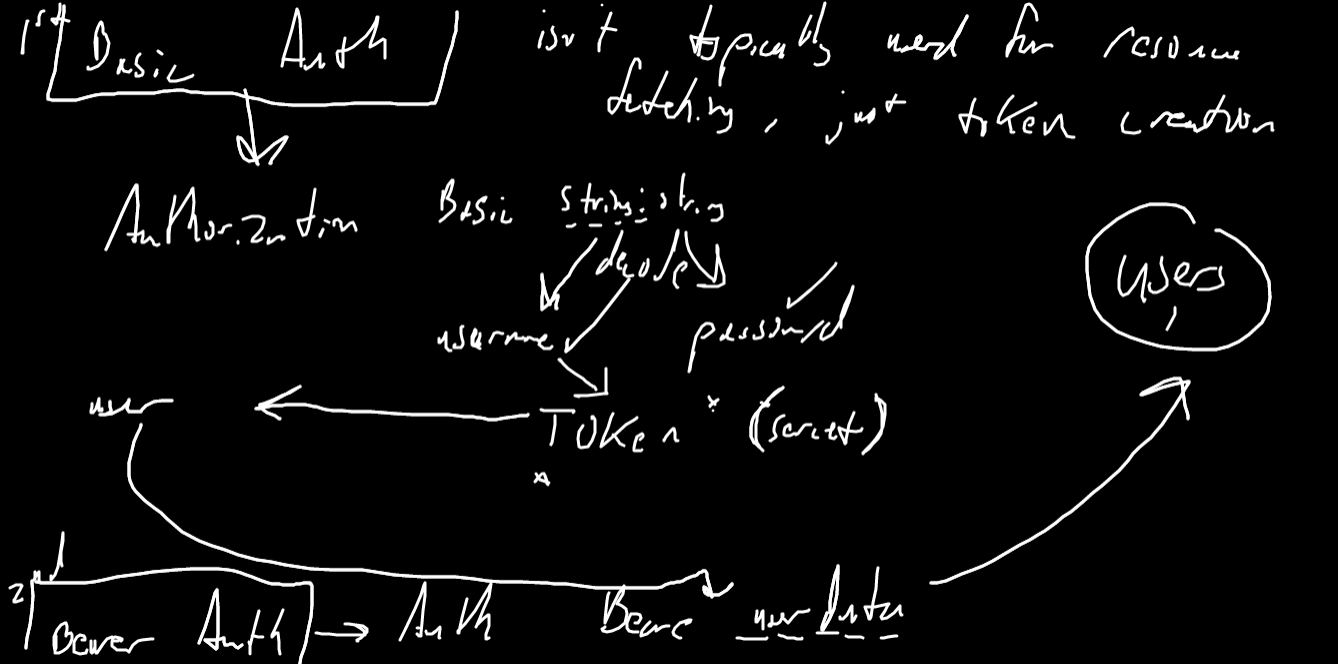 1st Basic Auth isn't typically used for resource
fetching, just token creation
Authorization Basic string:string
decode
username password
users
user Token (secret)
2nd
Bearer Auth → Auth Beare userData